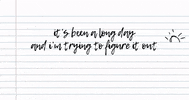 it's been a long day
and i'm trying to figure it out